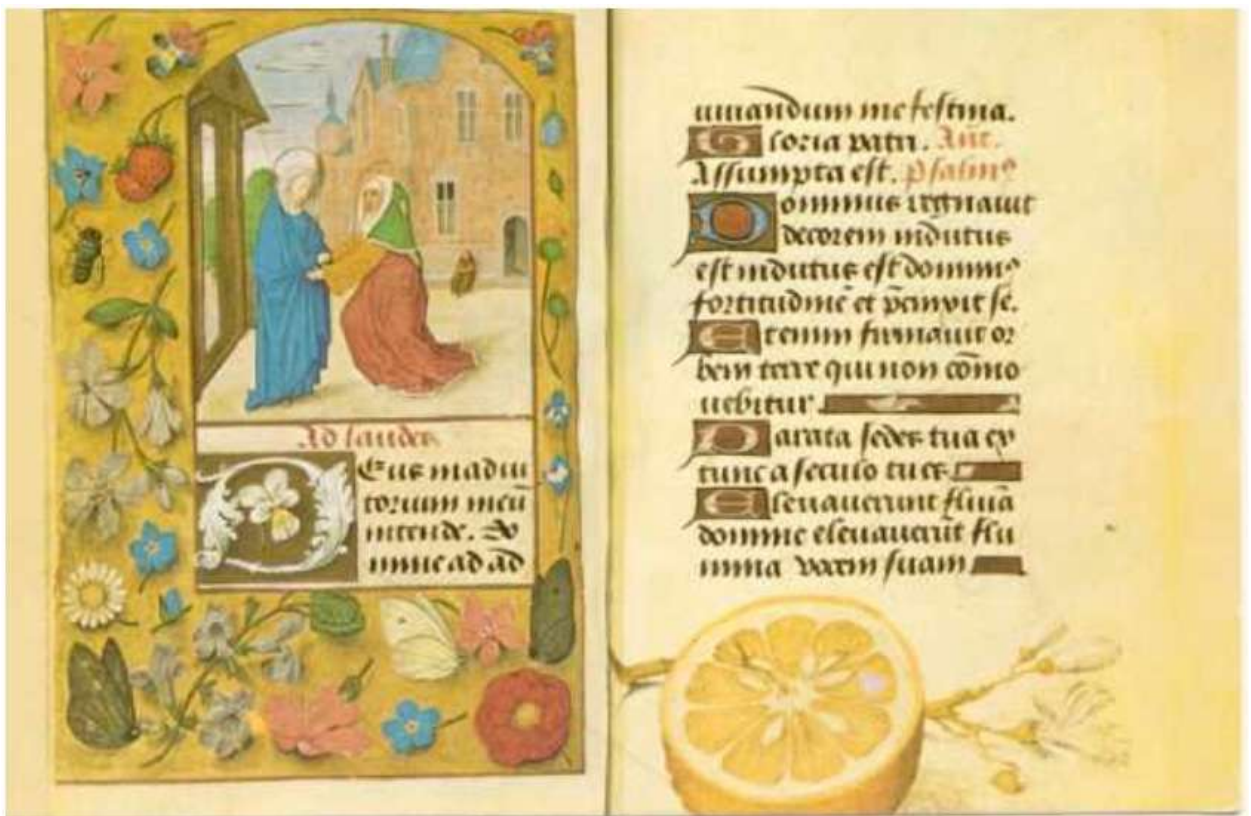 Ad laudes
Deus in adiu
torium meū
intende. Do
mine ad ad
iuuandum me festina.
Gloria patri. Añt.
Assumpta est. Psalmꝰ
Dominus regnauit
decorem indutus
est indutus est dominꝰ
fortitudinē et p̄cinxit se.
Etenim firmauit or
bem terre qui non cōmo
uebitur.
Parata sedes tua ex
tunc a seculo tu es.
Eleuauerunt flumīa
domine eleuauerūt flu
mina vocem suam